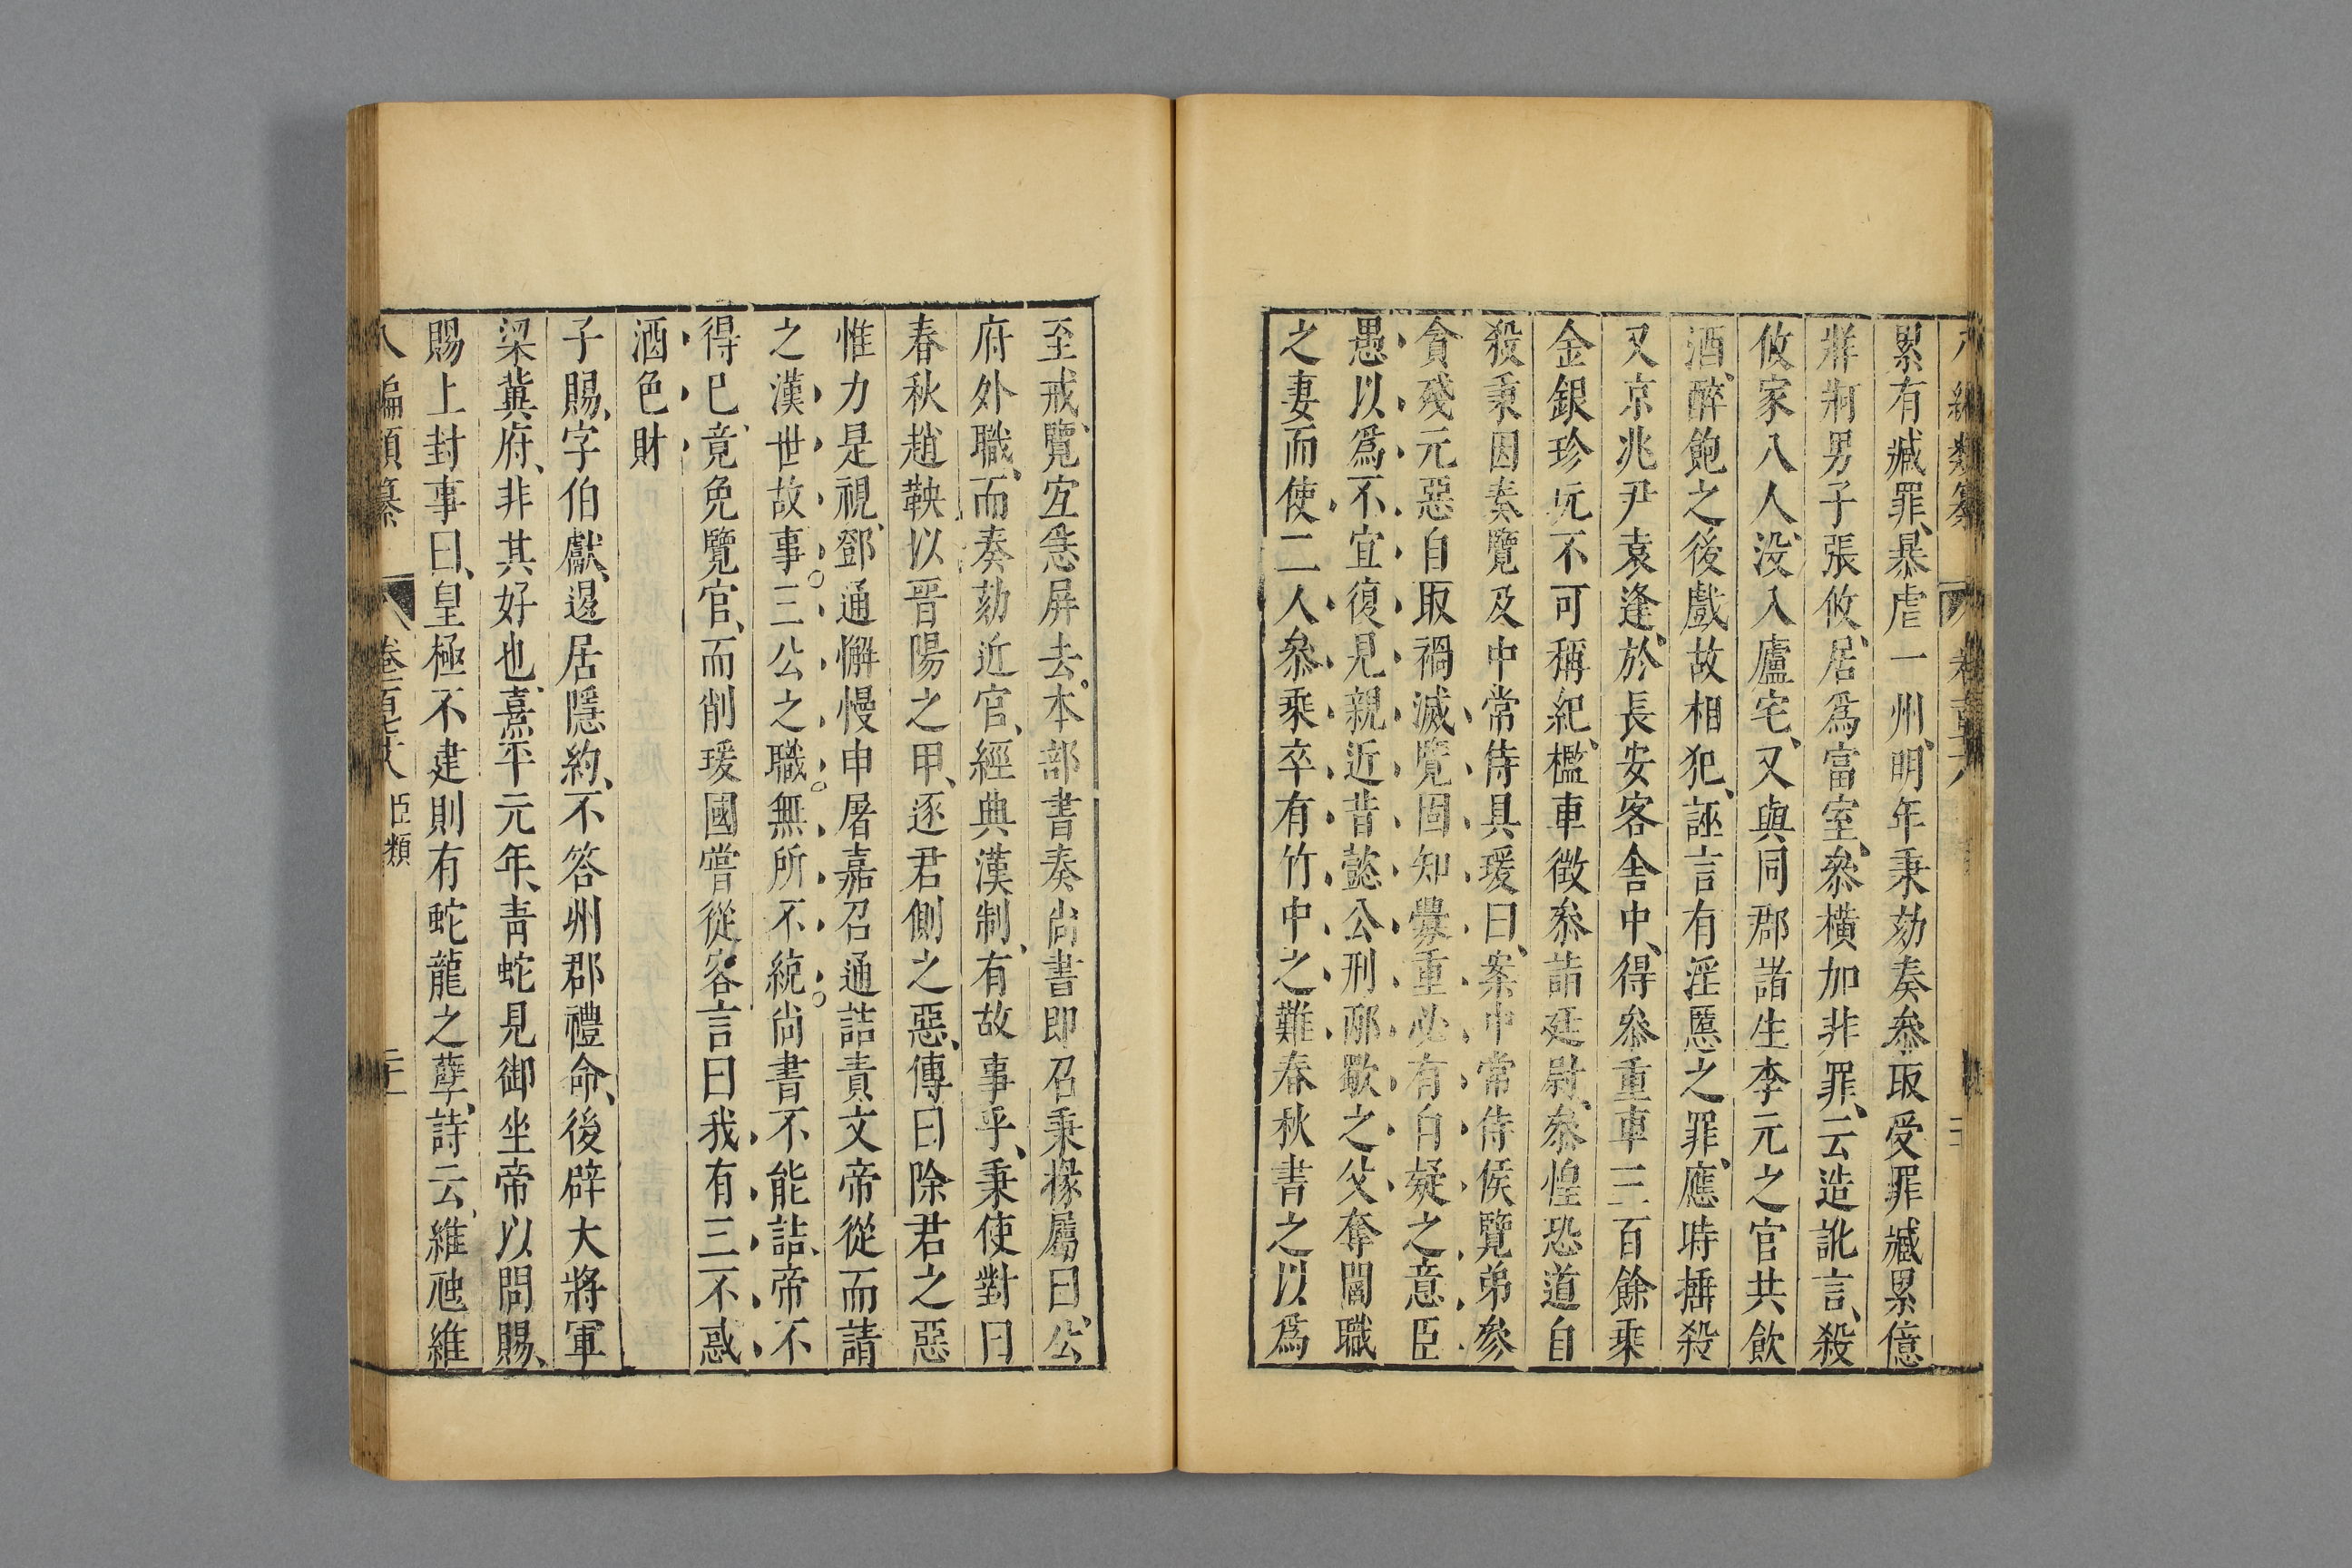 累有臧罪、暴虐一州、明年秉劾奏叅取受罪臧累億
牂牁男子張攸、居爲富室、叅橫加非罪、云造訛言、殺
攸家八人、沒入廬宅、又與同郡諸生李元之官共飲
酒、醉飽之後戲故相犯、誣言有淫慝之罪、應時捶殺
又京兆尹袁逢、於長安客舍中、得叅重車三百餘乘
金銀珍玩不可稱紀、檻車徴叅詣廷尉、叅惶恐道自
殺秉因奏覽及中常侍具瑗曰、案中常侍侯覽弟參
貪殘元惡自取禍滅、覽固知釁重必有自疑之意臣
愚以爲不宜復見親近昔懿公刑邴歜之父奪閻職
之妻而使二人叅乘卒有竹中之難春秋書之以爲
至戒、覽宜急屏去。本部書奏尚書即召秉掾屬曰、公
府外職、而奏劾近官、經典漢制、有故事乎、秉使對曰
春秋趙鞅以晉陽之甲、逐君側之惡、傳曰除君之惡
惟力是視、鄧通懈慢申屠嘉召通詰責文帝從而請
之漢世故事三公之職無所不統尚書不能詰、帝不
得已、竟免覽官、而削瑗國嘗從容言曰我有三不惑
酒色財
子賜、字伯獻、退居隱約、不答州郡禮命、後辟大將軍
梁冀府、非其好也、熹平元年、青蛇見御坐帝以問賜、
賜上封事曰、皇極不建則有蛇龍之孽、詩云、維虺維
八編類纂 卷 臣類